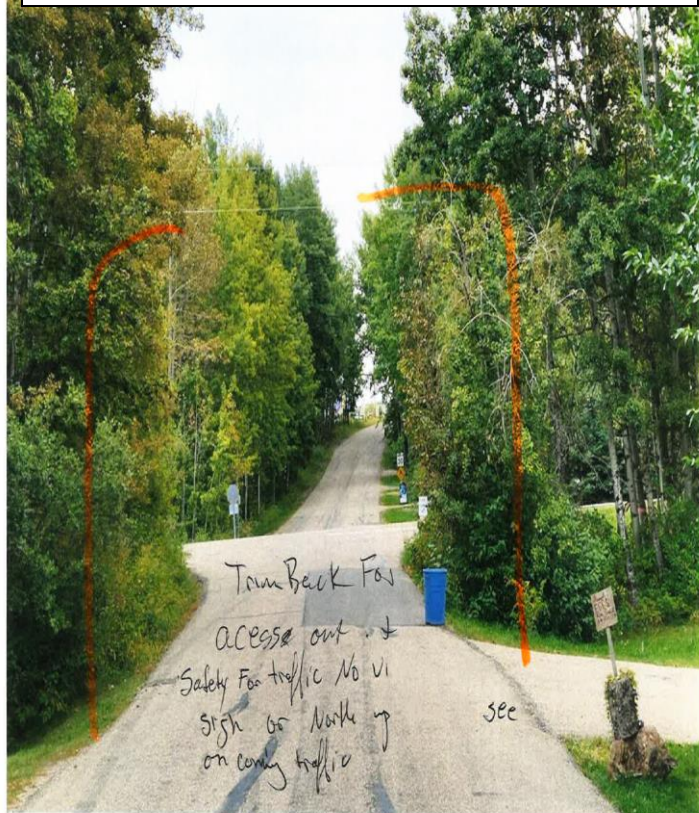 Trim Back For
acesse out
Safety For traffic No vi
sign or North
on coming traffic
see